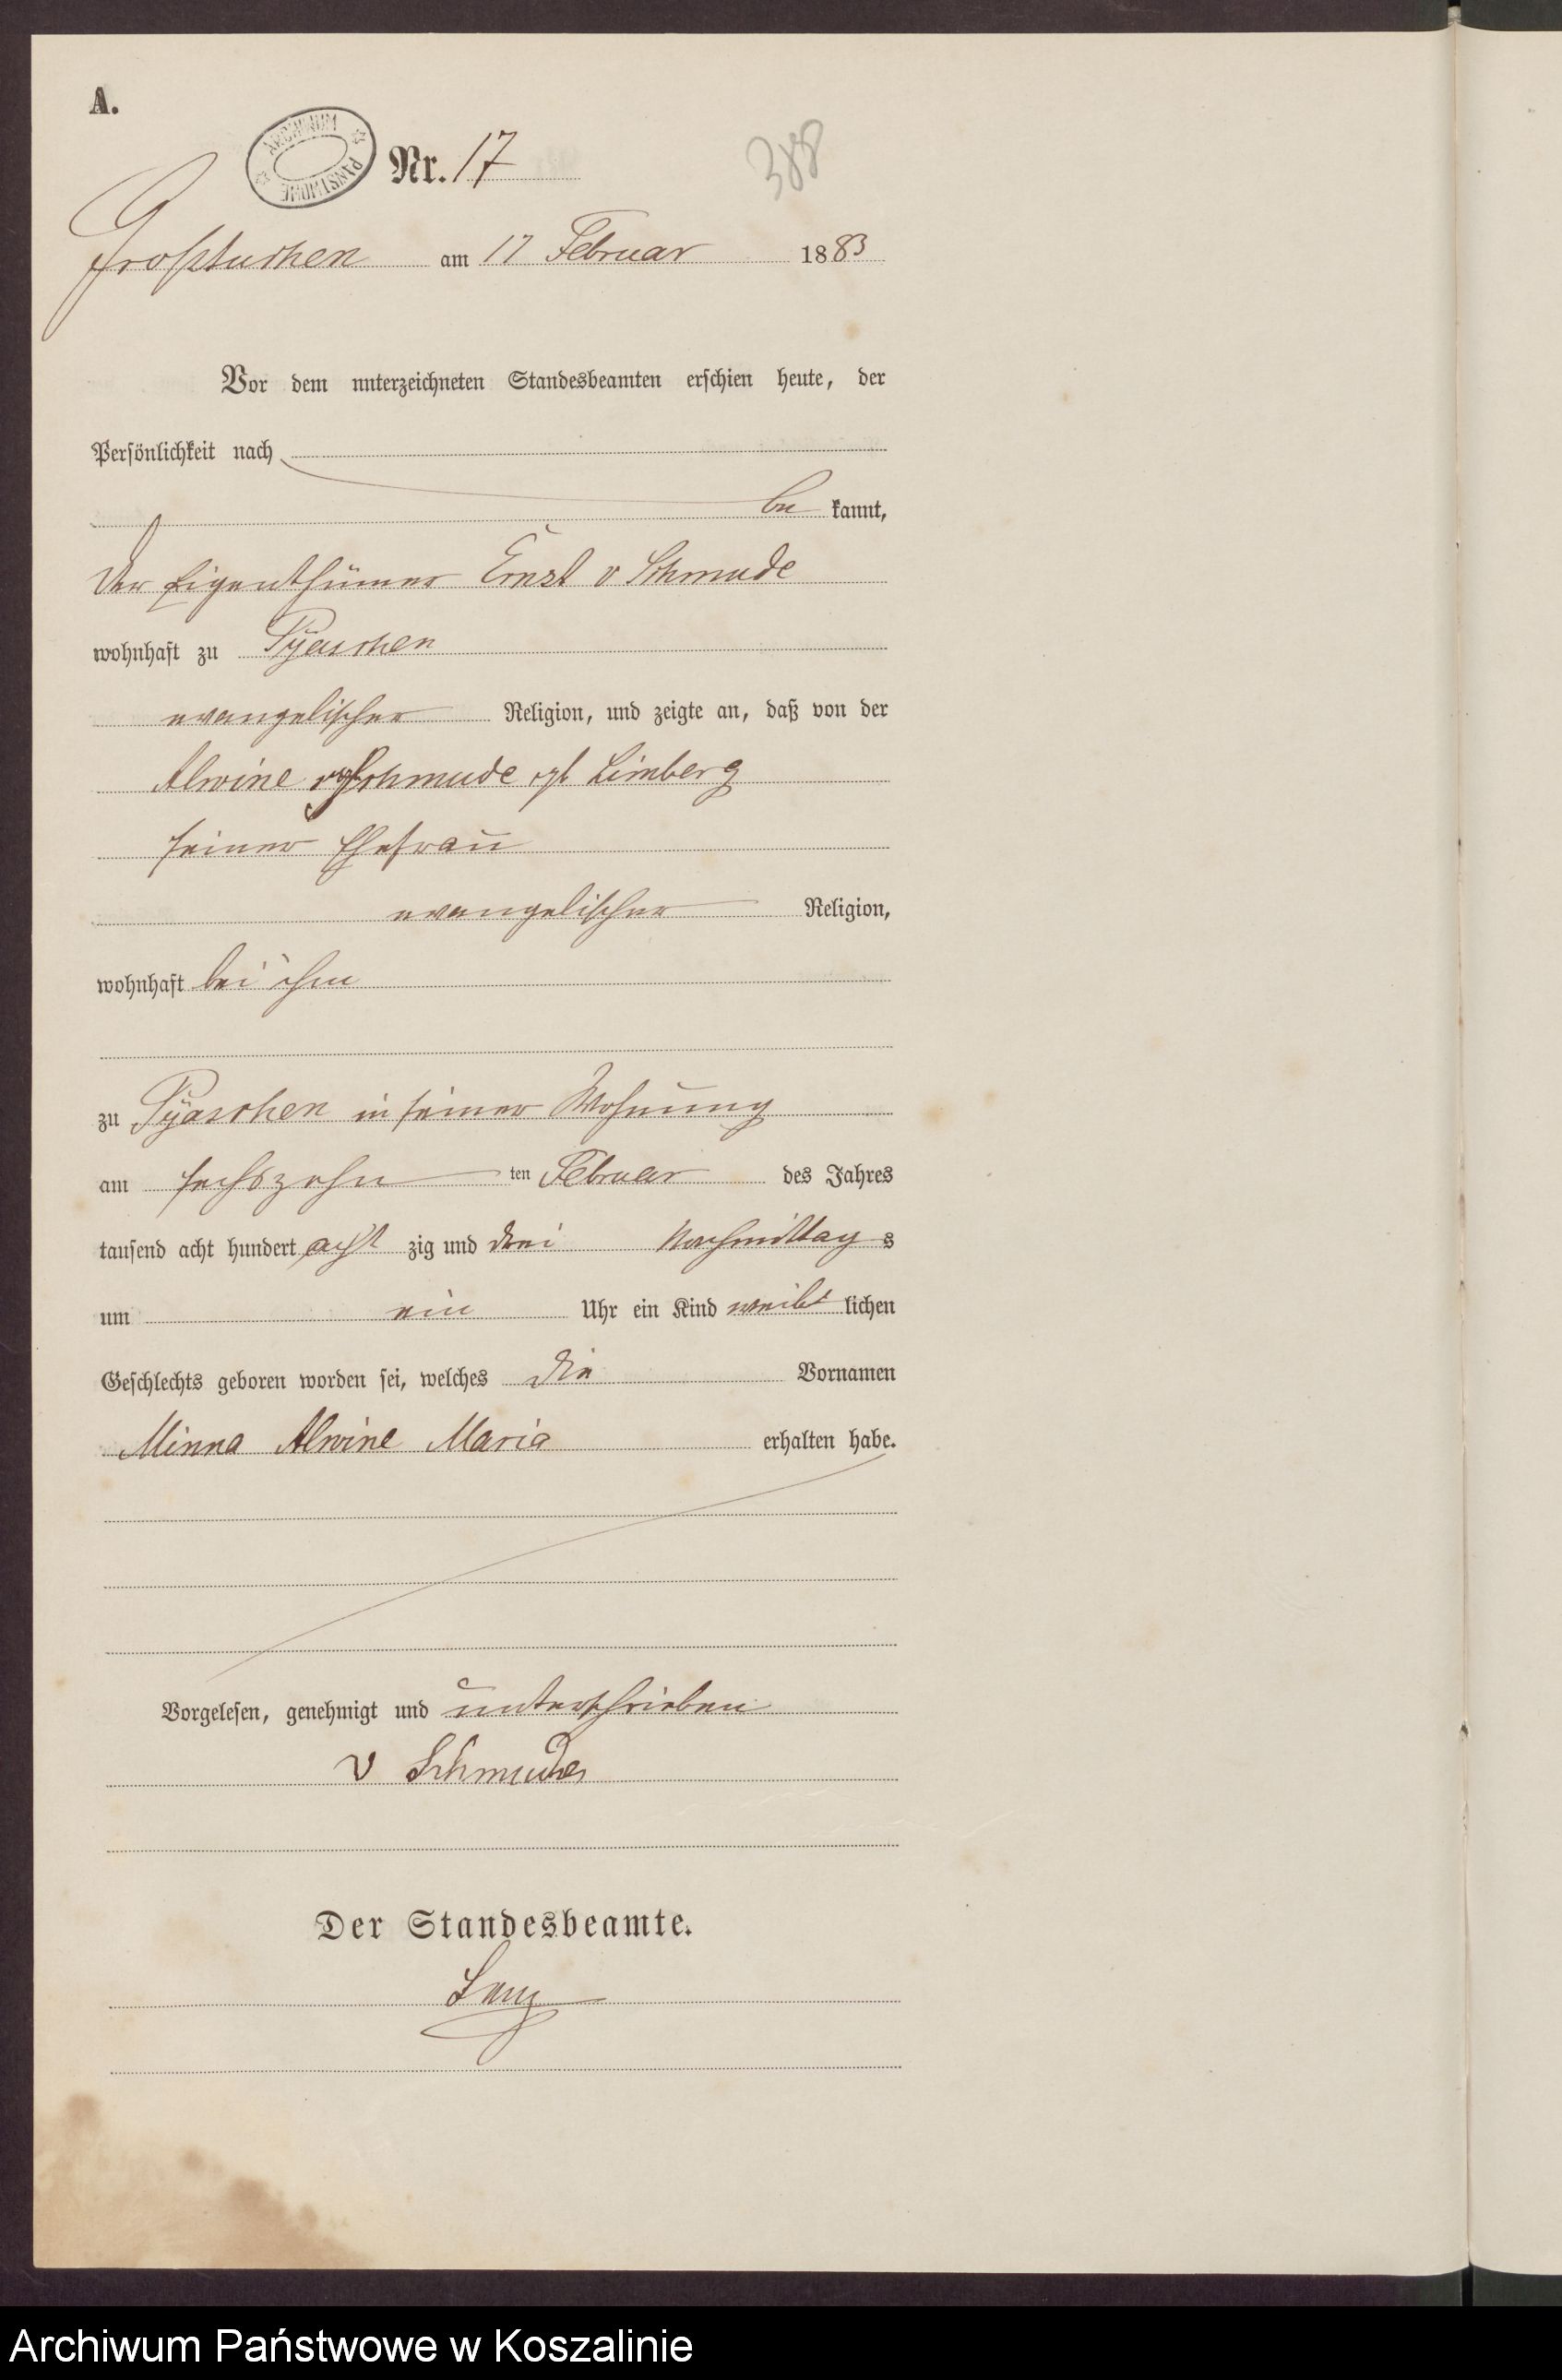 A.
ARCHIWUM PAŃSTWOWE
Nr. 17
388
Großtuchen am 17 Februar 1883
Vor dem unterzeichneten Standesbeamten erschien heute, der
Persönlichkeit nach
be kannt,
der Eigenthümer Ernst v Schmude
wohnhaft zu Pyaschen
evangelischer Religion, und zeigte an, daß von der
Alwine v Schmude geb Limberg
seiner Ehefrau
evangelischer Religion,
wohnhaft bei ihm
zu Pyaschen in seiner Wohnung
am sechszehn ten Februar des Jahres
tausend acht hundert acht zig und drei Nachmittag s
um ein Uhr ein Kind weib lichen
Geschlechts geboren worden sei, welches die Vornamen
Minna Alwine Maria erhalten habe.
Vorgelesen, genehmigt und unterschrieben
v Schmude
Der Standesbeamte.
Archiwum Państwowe w Koszalinie